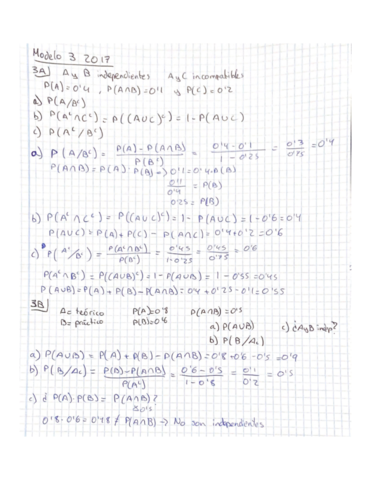 Modelo 3 2017
3A) A y B independientes A y C incompatibles
P(A)=0'4 , P(A∩B)=0'1 y P(C)=0'2
a) P(A/Bᶜ)
b) P(Aᶜ∩Cᶜ) = P((A∪C)ᶜ) = 1 - P(A∪C)
c) P(Aᶜ/Bᶜ)
a) P(A/Bᶜ) = P(A) - P(A∩B) / P(Bᶜ) = 0'4 - 0'1 / 1 - 0'25 = 0'3 / 0'75 = 0'4
P(A∩B) = P(A) · P(B) → 0'1 = 0'4 · P(B)
0'1 / 0'4 = P(B)
0'25 = P(B)
b) P(Aᶜ∩Cᶜ) = P((A∪C)ᶜ) = 1 - P(A∪C) = 1 - 0'6 = 0'4
P(A∪C) = P(A) + P(C) - P(A∩C) = 0'4 + 0'2 = 0'6
c) P(Aᶜ/Bᶜ) = P(Aᶜ∩Bᶜ) / P(Bᶜ) = 0'45 / 1 - 0'25 = 0'45 / 0'75 = 0'6
P(Aᶜ∩Bᶜ) = P((A∪B)ᶜ) = 1 - P(A∪B) = 1 - 0'55 = 0'45
P(A∪B) = P(A) + P(B) - P(A∩B) = 0'4 + 0'25 - 0'1 = 0'55
3B) A= teórico P(A)=0'8 P(A∩B)=0'5
B= práctico P(B)=0'6 a) P(A∪B) c) ¿A y B indp?
b) P(B/Aᶜ)
a) P(A∪B) = P(A) + P(B) - P(A∩B) = 0'8 + 0'6 - 0'5 = 0'9
b) P(B/Aᶜ) = P(B) - P(A∩B) / P(Aᶜ) = 0'6 - 0'5 / 1 - 0'8 = 0'1 / 0'2 = 0'5
c) ¿ P(A) · P(B) = P(A∩B) ?
0'5
0'8 · 0'6 = 0'48 ≠ P(A∩B) → No son independientes